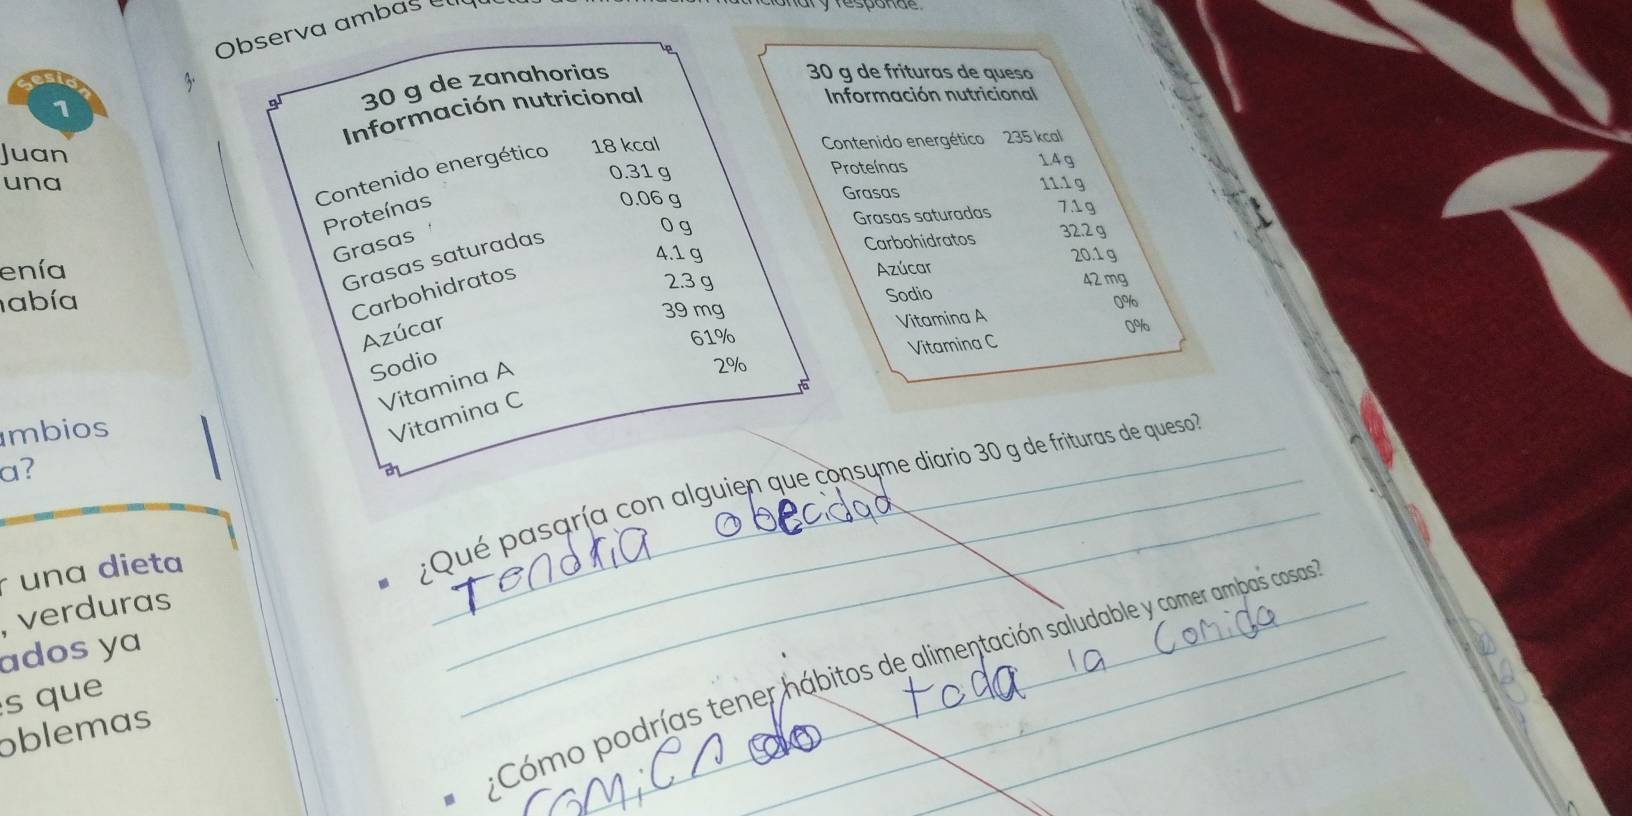 Observa ambas
y responde.
3.
Sesión
1
Juan
una
enía
había
ambios
a?
r una dieta
, verduras
ados ya
es que
oblemas
30 g de zanahorias
Información nutricional
Contenido energético 18 kcal
Proteínas 0.31 g
Grasas 0.06 g
Grasas saturadas 0 g
Carbohidratos 4.1 g
Azúcar 2.3 g
Sodio 39 mg
Vitamina A 61%
Vitamina C 2%
30 g de frituras de queso
Información nutricional
Contenido energético 235 kcal
Proteínas 1.4 g
Grasas 11.1 g
Grasas saturadas 7.1 g
Carbohidratos 32.2 g
Azúcar 20.1 g
Sodio 42 mg
Vitamina A 0%
Vitamina C 0%
¿Qué pasaría con alguien que consume diario 30 g de frituras de queso?
Tendria obecidad
¿Cómo podrías tener hábitos de alimentación saludable y comer ambas cosas?
comiendo toda la comida